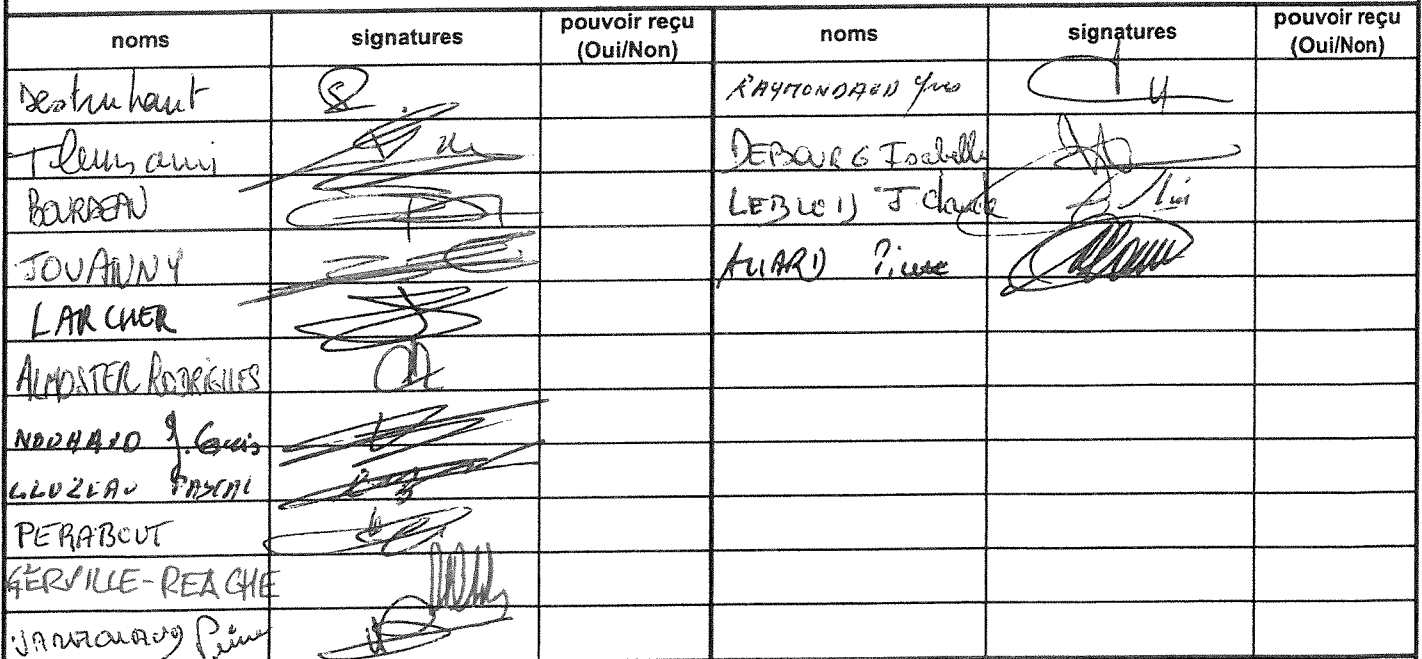 noms signatures pouvoir reçu (Oui/Non) noms signatures pouvoir reçu (Oui/Non)
Destruhaut RAYMONDAUD Yves
Tlemsani DEBOURG Isabelle
BOURDEAU LEBLOIS J Claude
JOUANNY ALLARD Pierre
LARCHER
ALMOSTER RODRIGUES
NOUHAUD J. Louis
CLUZEAU PASCAL
PERABOUT
GERVILLE-REACHE